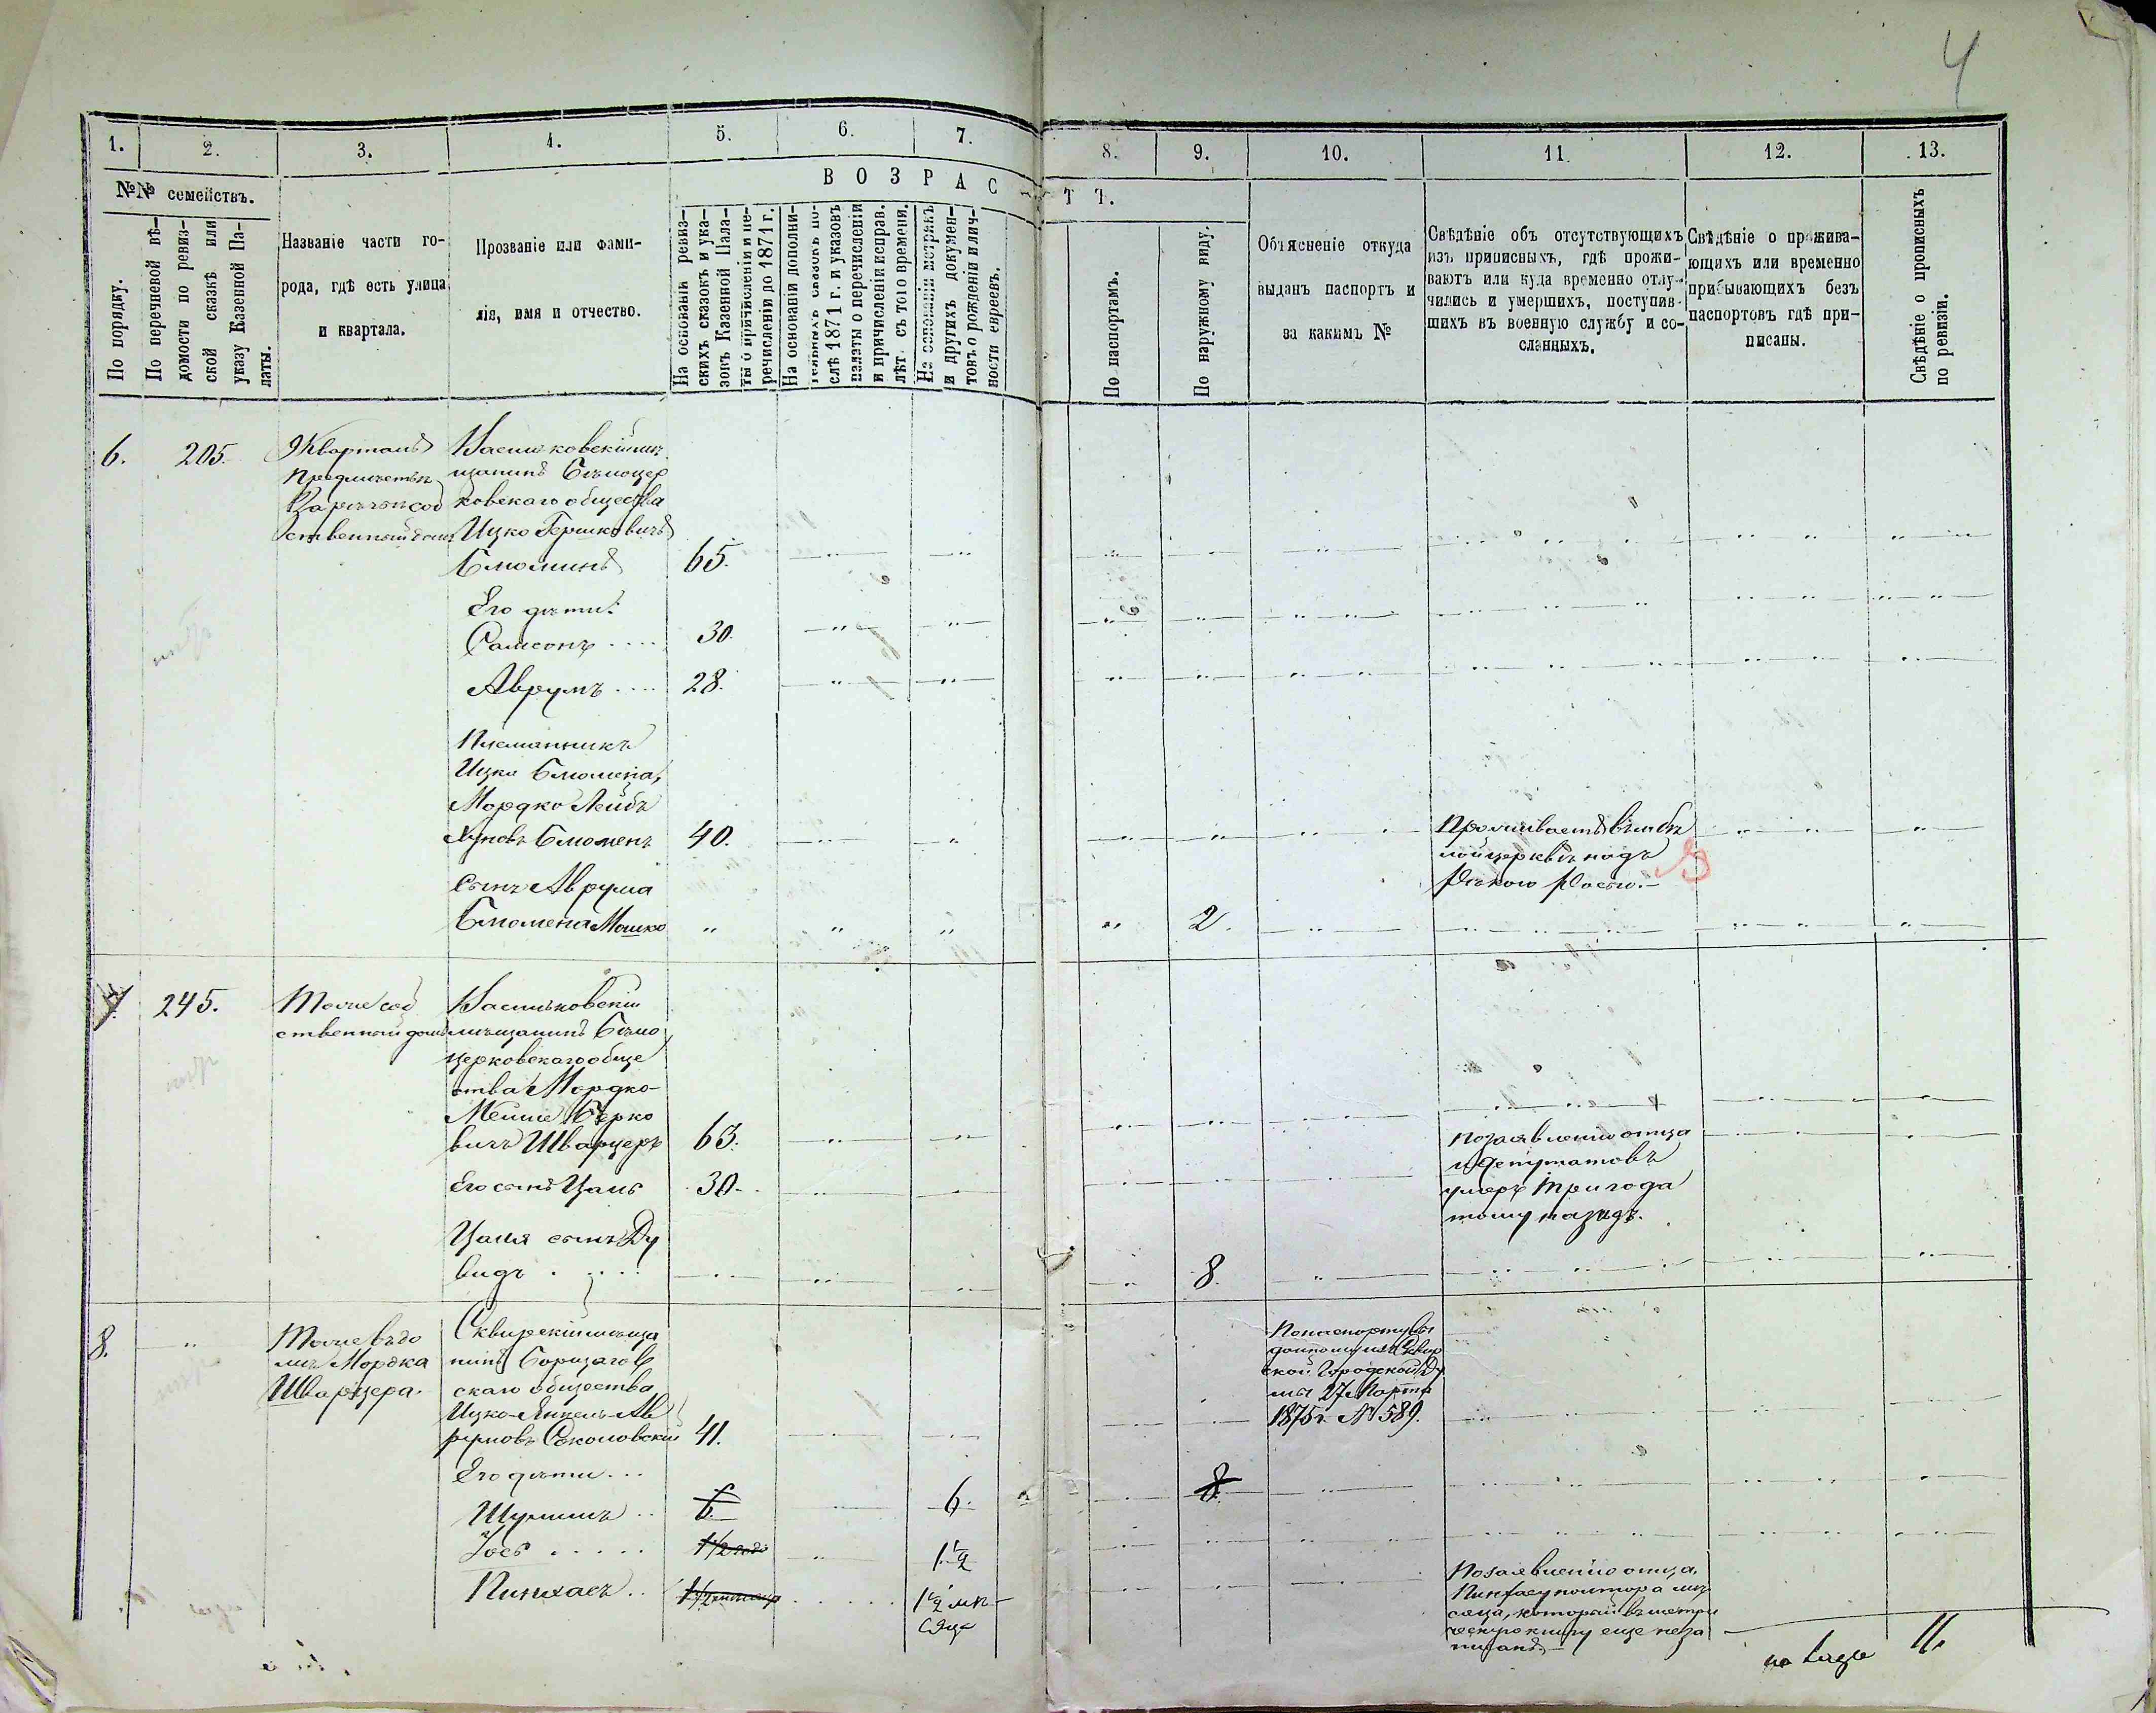 4
1. 2. 3. 4. 5. 6. 7. 8. 9. 10. 11. 12. 13.
№№ семействъ.
По порядку.
По перечневой вѣ-
домости по ревиз-
ской сказкѣ или
указу Казенной Па-
латы.
Названіе части го-
рода, гдѣ есть улица
и квартала.
Прозваніе или фами-
лія, имя и отчество.
ВОЗРАСТЪ.
На основаніи ревиз-
скихъ сказокъ и ука-
зовъ Казенной Пала-
ты о причисленіи и пе-
речисленіи до 1871 г.
На основаніи дополни-
тельныхъ сказокъ по-
слѣ 1871 г. и указовъ
палаты о перечисленіи
и причисленіи исправ.
лѣт. съ того времени.
На основаніи метрикъ
и другихъ докумен-
товъ о рожденіи и лич-
ности евреевъ.
По паспортамъ.
По наружному виду.
Объясненіе откуда
выданъ паспортъ и
за какимъ №
Свѣдѣніе объ отсутствующихъ
изъ приписныхъ, гдѣ прожи-
ваютъ или куда временно отлу-
чились и умершихъ, поступив-
шихъ въ военную службу и со-
сланныхъ.
Свѣдѣніе о прожива-
ющихъ или временно
прибывающихъ безъ
паспортовъ гдѣ при-
писаны.
Свѣдѣніе о прописныхъ
по ревизіи.
6. 205.
Кварталъ
Предмѣстье
Зарѣчье соб
ственный домъ
Васильковскій мѣ
щанинъ Бѣлоцер
ковскаго общества
Ицко Гершковичъ
Блюминъ 65.
Его дѣти:
Самсонъ 30.
Аврумъ 28.
Племянникъ
Ицка Блюмена,
Мордко Лейбъ
Блюменъ 40.
Проживаетъ въ мѣ Бѣ
лой церкви надъ
рѣкою Росью.
Сынъ Аврума
Блюмена Мошко 2.
7. 245.
Тоже соб
ственный домъ
Васильковскій
мѣщанинъ Бѣло
церковскаго обще
ства Мордко-
Берко
вичъ Шварцеръ 63.
Его сынъ Цаль 30.
По заявленію отца
и депутатовъ
умеръ три года
тому назадъ.
Цаля сынъ Ду
видъ 8.
8.
Тоже въ до
мѣ Мордка
Шварцера.
Сквирскій мѣща
нинъ
скаго общества
Ицко-Янкель-Ав
румовъ Соколовскій 41.
По паспорту вы
данному изъ Сквир
ской Городской Ду
мы 27 Марта
1875 г. № 589.
Его дѣти
Шулимъ 6. 6. 8.
Іось 1½ года 1½
Пинхасъ 1½ мѣсяца 1½ мѣ-
сяца
По заявленію отца,
Пинхасу полтора мѣ
сяца, который въ метри
ческую книгу еще не за
писанъ.
11.